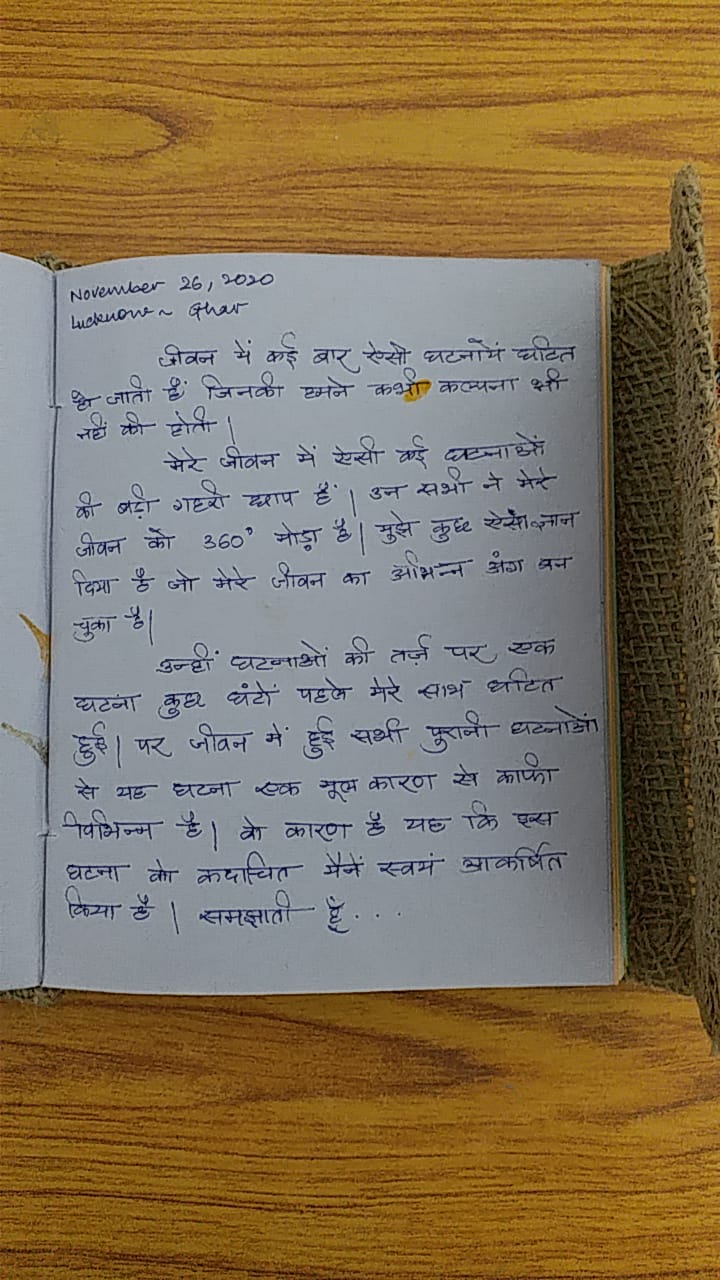 November 26, 2020
Lucknow ~ Ghar
जीवन में कई बार ऐसी घटनायें घटित
हो जाती हैं जिनकी हमने कभी कल्पना भी
नहीं की होती |
मेरे जीवन में ऐसी कई घटनाओं
की बड़ी गहरी छाप हैं | उन सभी ने मेरे
जीवन को 360° मोड़ा है | मुझे कुछ ऐसा ज्ञान
दिया है जो मेरे जीवन का अभिन्न अंग बन
चुका है |
उन्हीं घटनाओं की तर्ज़ पर एक
घटना कुछ घंटों पहले मेरे साथ घटित
हुई | पर जीवन में हुई सभी पुरानी घटनाओं
से यह घटना एक मूल कारण से काफी
विभिन्न है | वो कारण है यह कि इस
घटना को कदाचित मैनें स्वयं आकर्षित
किया है | समझाती हूँ . . .